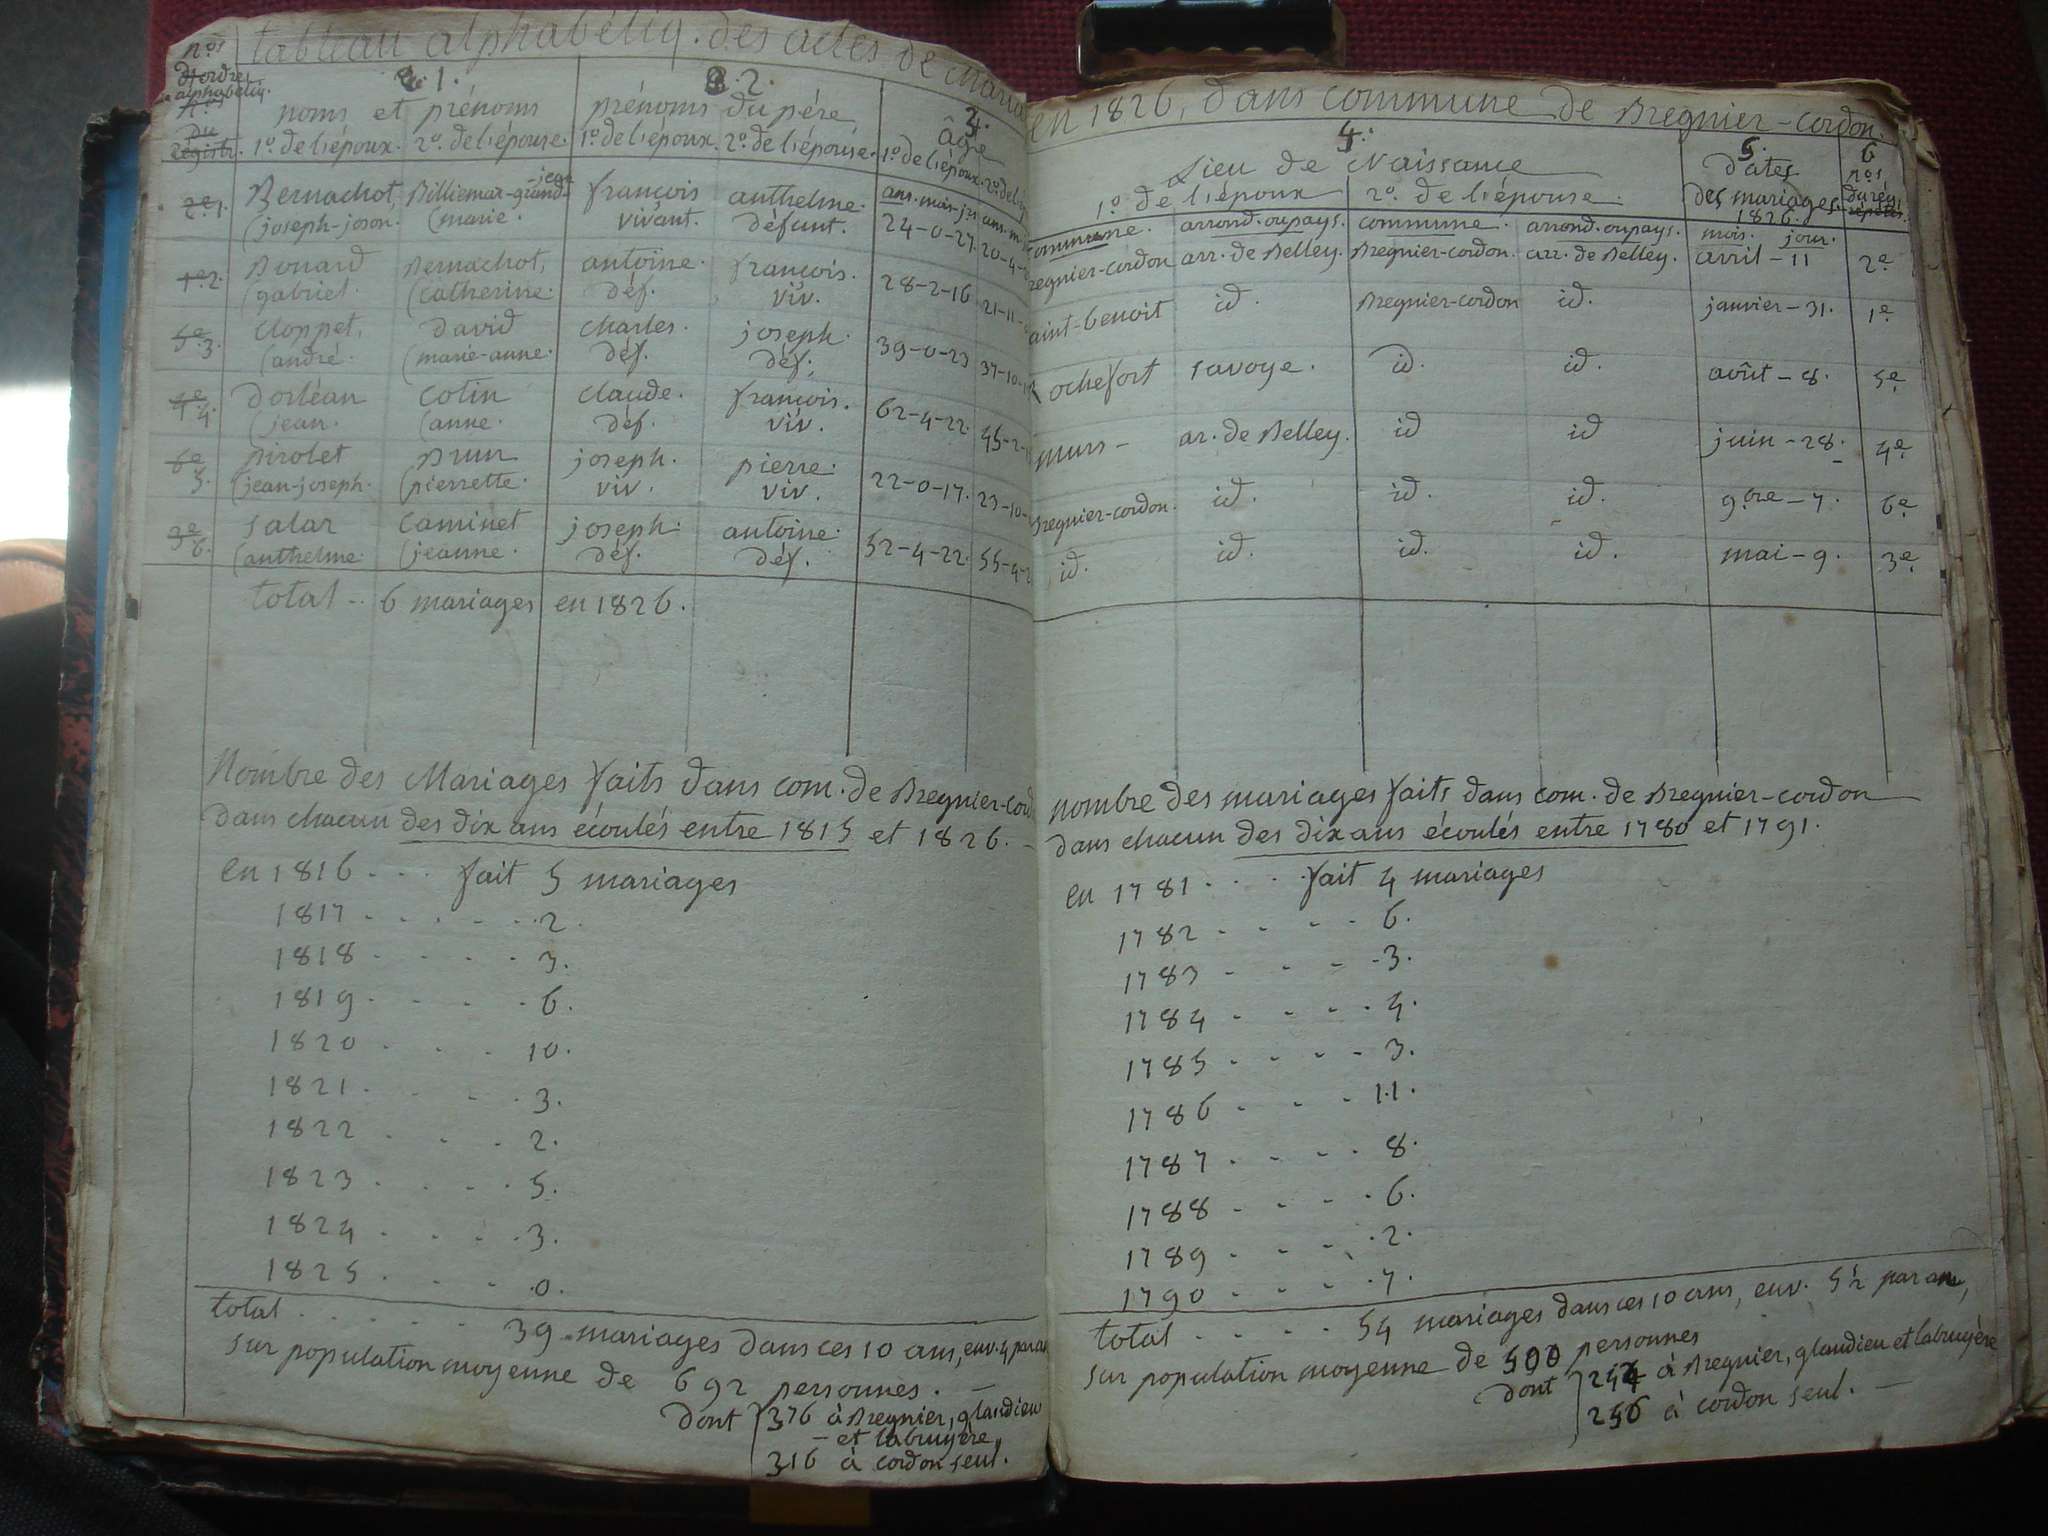 tableau alphabétiq. des actes de maria
n.os
d'ordre alphabétiq.
n.os du registr.
1.
noms et prénoms
1º. de l'époux. 2º. de l'épouse.
2.
prénoms du père
1º. de l'époux. 2º. de l'épouse.
âge
1º. de l'époux. 2º. de l'ép
ans-mois-jrs ans-m
2e 1. Bernachot, Billiemar-grand-jean françois anthelme. 24-0-27. 20-4-
(joseph-joson. (marie. vivant. défunt.
1e 2. Bouard Bernachot, antoine. françois. 28-2-16 21-11-
(gabriel. (catherine. déf. viv.
5e 3. Cloppet, David charles. joseph. 39-0-23 37-10-
(andré. (marie-anne. déf. déf.
4e 4. Dorléan Colin claude. françois. 62-4-22. 45-2-
(jean. (anne. déf. viv.
6e 5. Pirolet Brun joseph. pierre. 22-0-17. 23-10-
(jean-joseph. (pierrette. viv. viv.
3e 6. Salar Caminet joseph. antoine. 52-4-22. 55-4-
(anthelme. (jeanne. déf. déf.
total .. 6 mariages en 1826.
Nombre des Mariages faits dans com. de Bregnier-cord
dans chacun des dix ans écoulés entre 1815 et 1826. -
en 1816 . . . fait 5 mariages
1817 . . . . . 2.
1818 . . . . . 3.
1819 . . . . . 6.
1820 . . . . 10.
1821 . . . . . 3.
1822 . . . . 2.
1823 . . . . 5.
1824 . . . . 3.
1825 . . . . 0.
total . . . . . . 39 mariages dans ces 10 ans, env. 4 par an
sur population moyenne de 692 personnes. —
dont 376 à Bregnier, glandieu
- et labruyère,
316 à cordon seul.
en 1826, dans commune de Bregnier-cordon.
4.
Lieu de Naissance
1º. de l'époux 2º. de l'épouse.
commune. arrond. ou pays. commune. arrond. ou pays.
5.
dates
des mariages.
1826.
mois. jour.
6
n.os
du rég.
regnier-cordon arr. de Belley. Bregnier-cordon. arr. de Belley. avril - 11 2e
aint-benoit id. Bregnier-cordon id. janvier - 31. 1e
Rochefort savoye. id. id. août - 8. 5e
murs - ar. de Belley. id id juin - 28. 4e
Bregnier-cordon. id. id. id. 9bre - 7. 6e
id. id. id. id. mai - 9. 3e
nombre des mariages faits dans com. de Bregnier-cordon
dans chacun des dix ans écoulés entre 1780 et 1791.
en 1781 . . . . fait 4 mariages
1782 . . . . 6.
1783 . . . . 3.
1784 . . . . 4.
1785 . . . . 3.
1786 . . . 11.
1787 . . . . 8.
1788 . . . . 6.
1789 . . . . 2.
1790 . . . . 7.
total . . . . . 54 mariages dans ces 10 ans, env. 5½ par an,
sur population moyenne de 500 personnes
dont à Bregnier, glandieu et labruyère
256 à cordon seul. —